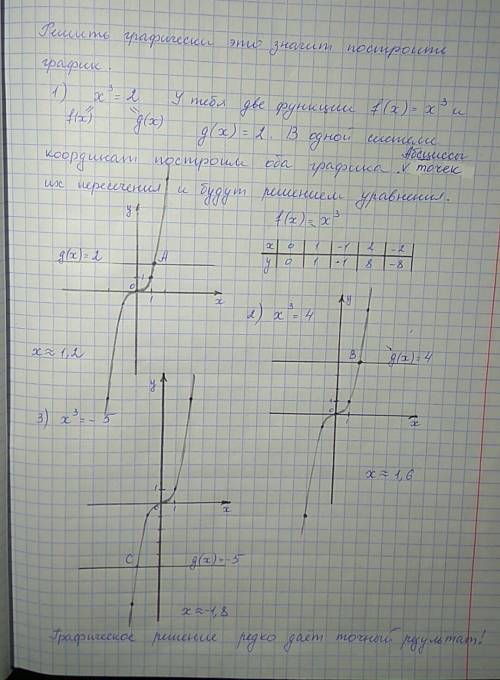 Решить графически это значит построить
график.
1) x³ = 2 У тебя две функции f(x) = x³ и
f(x) g(x) g(x) = 2. В одной системе
координат построим оба графика. Абсциссы точек
их пересечения и будут решением уравнения.
f(x) = x³
x 0 1 -1 2 -2
y 0 1 -1 8 -8
y
g(x) = 2 A
1
0 1 x
x ≈ 1,2
2) x³ = 4
y
B g(x) = 4
1
0 1 x
x ≈ 1,6
3) x³ = - 5
y
1
0 1 x
C g(x) = -5
x ≈ -1,8
Графическое решение редко дает точный результат!